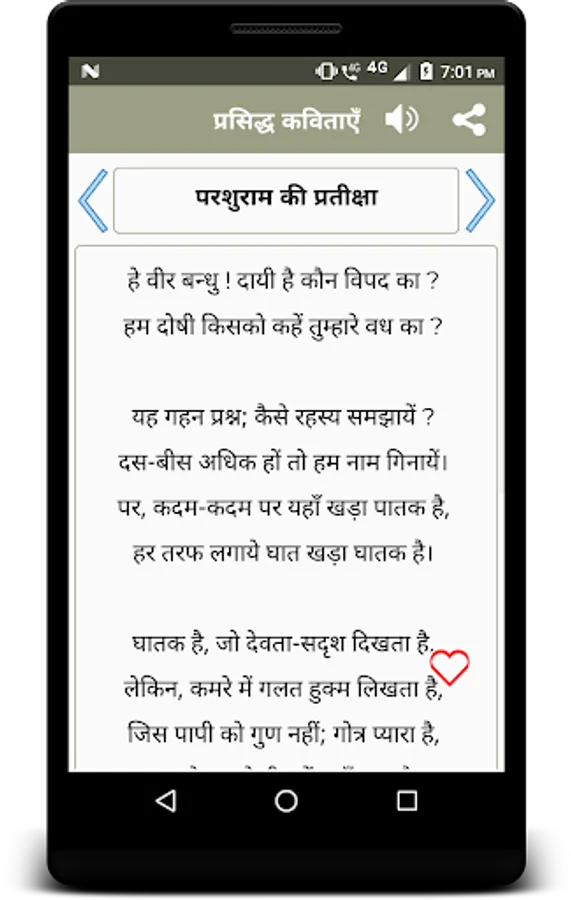 4G 4G 7:01 PM
प्रसिद्ध कविताएँ
परशुराम की प्रतीक्षा
हे वीर बन्धु ! दायी है कौन विपद का ?
हम दोषी किसको कहें तुम्हारे वध का ?
यह गहन प्रश्न; कैसे रहस्य समझायें ?
दस-बीस अधिक हों तो हम नाम गिनायें।
पर, कदम-कदम पर यहाँ खड़ा पातक है,
हर तरफ लगाये घात खड़ा घातक है।
घातक है, जो देवता-सदृश दिखता है,
लेकिन, कमरे में गलत हुक्म लिखता है,
जिस पापी को गुण नहीं; गोत्र प्यारा है,